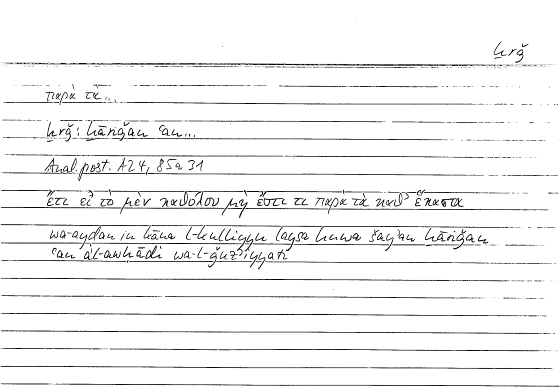 ḫrǧ
παρὰ τὰ...
ḫrǧ : ḫāriǧan ʿan...
Anal. post. A24, 85a31
ἔτι εἰ τὸ μὲν καθόλου μὴ ἔστι τι παρὰ τὰ καθ' ἕκαστα
wa-ayḍan in kāna l-kulliyyu laysa huwa šayʾan ḫāriǧan
ʿan al-awḥādi wa-l-ǧuzʾiyyāti